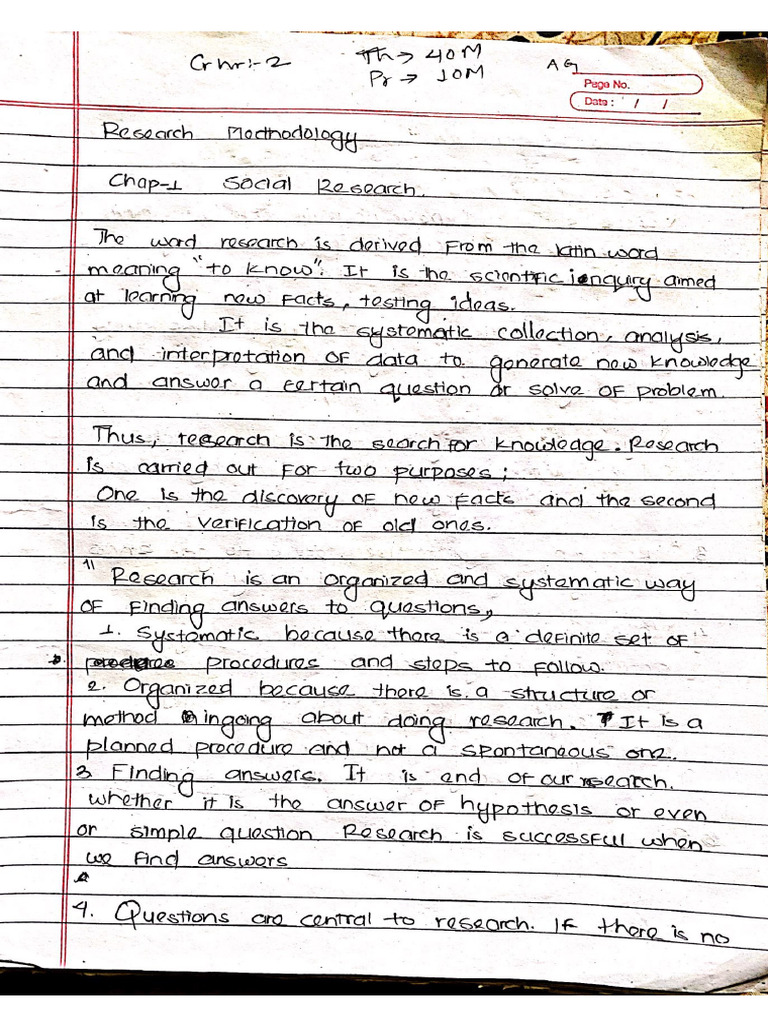 Cr hr:- 2
Th → 40M
Pr → 10M
AG
Page No.
Date : / /
Research Moethodology
Chap-1 Social Research.
The word research is derived From the latin word
meaning "to know". It is the scientific ienquiry aimed
at learning new Facts, testing ideas.
It is the systematic collection, analysis,
and interpretation of data to generate new knowledge
and answer a certain question or solve of problem.
Thus, research is the search for knowledge. Research
is carried out For two purposes;
One is the discovery of new Facts and the second
is the verification of old ones.
1) Research is an organized and systematic way
of Finding answers to questions,
1. Systematic because there is a definite set of
procedures and steps to Follow.
2. Organized because there is a structure or
method ingoing about doing research. It is a
planned procedure and not a spontaneous one.
3 Finding answers. It is end of our research.
whether it is the answer of hypothesis or even
or simple question Research is successful when
we find answers
4. Questions are central to research. If there is no